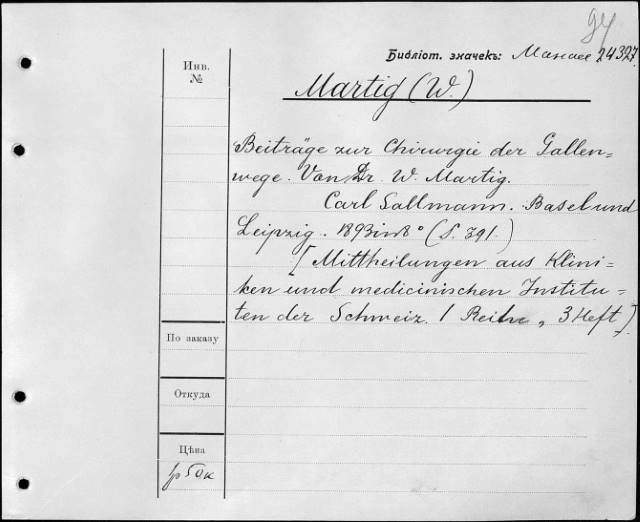 94
Библіот. значекъ: Манасе 24327.
Инв.
№
Martig (W.)
Beiträge zur Chirurgie der Gallen=
wege. Von Dr. W. Martig.
Carl Sallmann. Basel und
Leipzig. 1893 in 8° (S. 391.)
[Mittheilungen aus Klini=
ken und medicinischen Institu=
ten der Schweiz. 1 Reihe, 3 Heft.]
По заказу
Откуда
Цѣна
50к